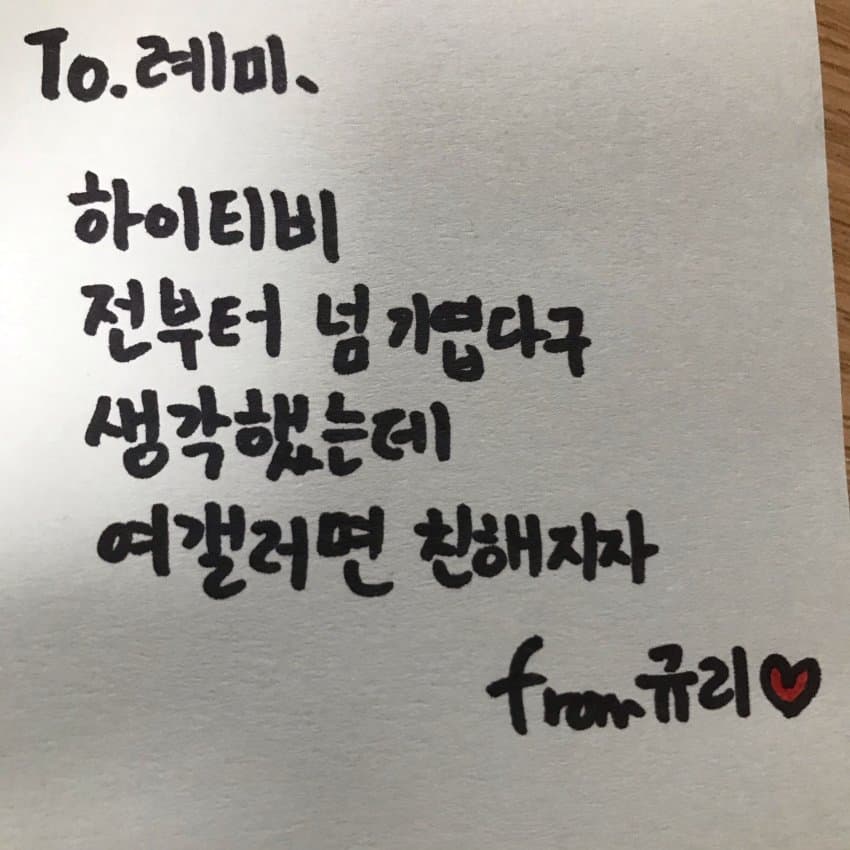 To. 례미、
하이티비
전부터 넘 기엽다구
생각했는데
여갤러면 친해지자
from 규리♥